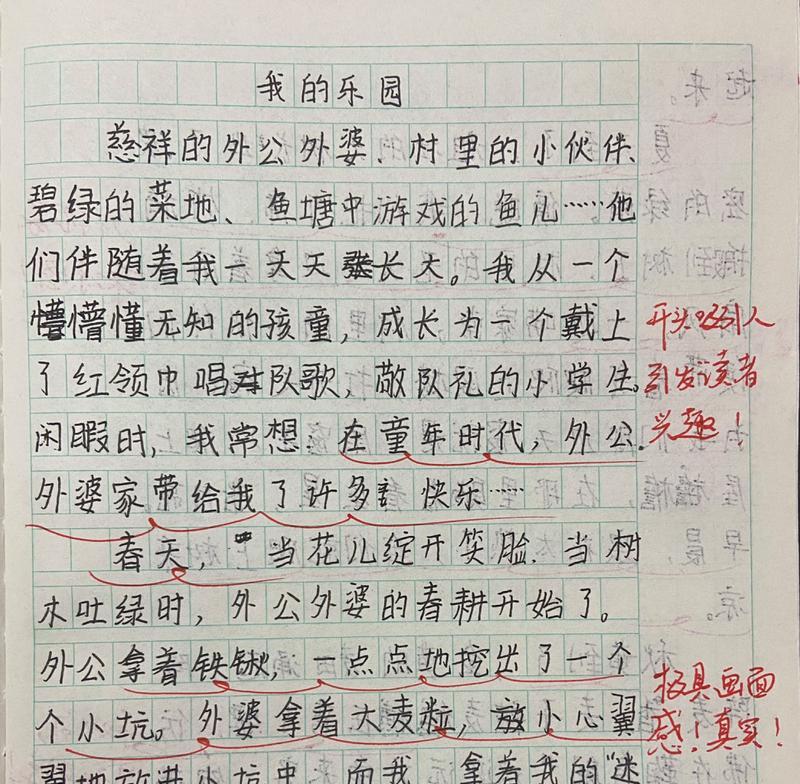 我的乐园
慈祥的外公外婆、村里的小伙伴、
碧绿的菜地、鱼塘中游戏的鱼儿……他
们伴随着我一天天长大。我从一个
懵懂无知的孩童，成长为一个戴上
开头吸引人
了红领巾唱队歌，敬队礼的小学生。
引发读者
闲暇时，我常想，在童年时代，外公、
兴趣！
外婆家带给我了许多 快乐……
春天，当花儿绽开笑脸，当树
木吐绿时，外公外婆的春耕开始了。
外公拿着铁锹，一点点地挖出了一个
极具画面
个小坑。外婆拿着大麦粒，放小心翼
感！真实！
翼地放进小坑中，而我，拿着我的“迷